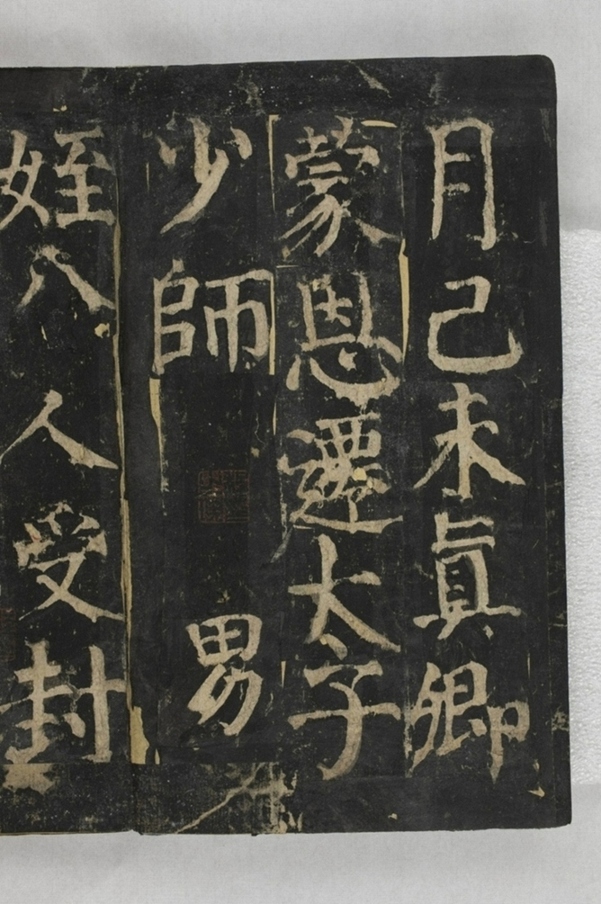 月己未真卿
蒙恩遷太子
少師 男
姪八人受封